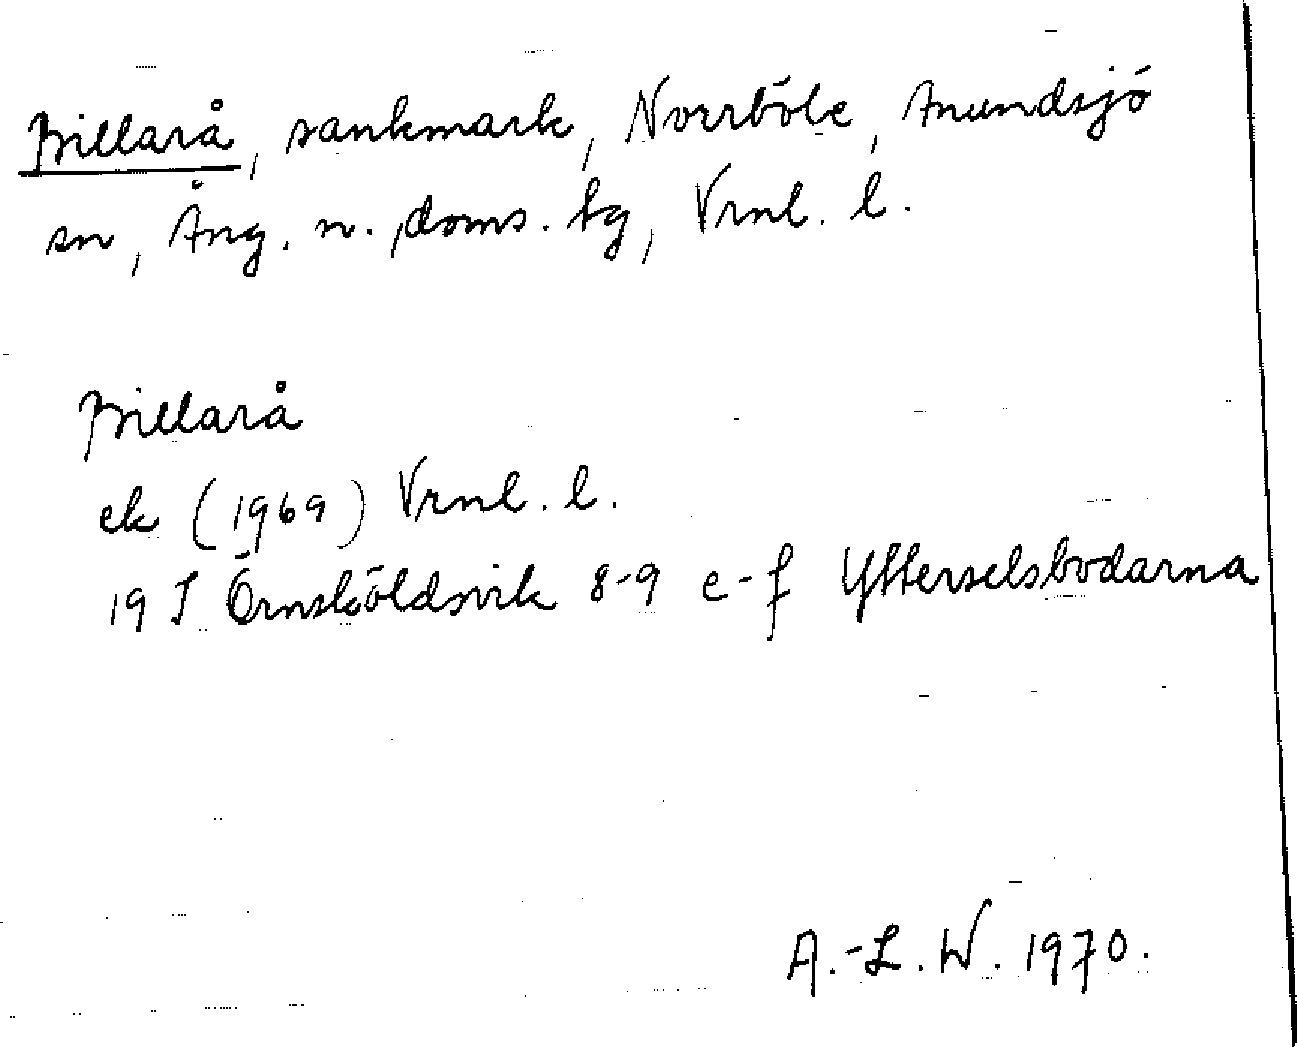 Billarå, sankmark, Norrböle, Anundsjö
sn, Ång. n. doms. tg, Vrnl. l.
Billarå
ek (1969) Vrnl. l.
19 I Örnsköldsvik 8-9 e-f Ytterselsbodarna
A.-L. W. 1970.